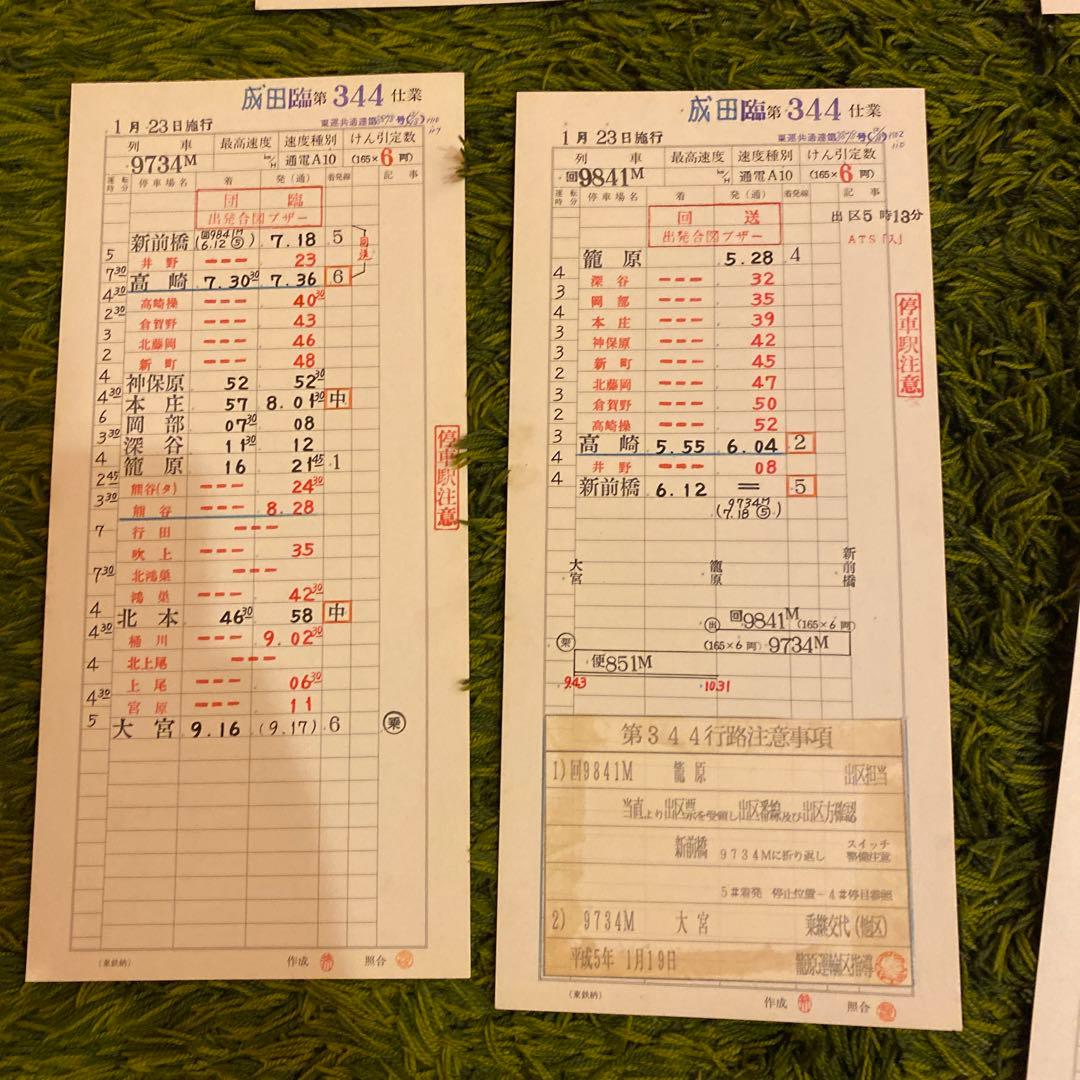 成田臨第344仕業
1月23日施行
東運共通達第 号
列 車 最高速度 速度種別 けん引定数
9734M km/H 通電A10 (165×6両)
運転時分 停車場名 着 発(通) 着発線 記 事
団 臨
出発合図ブザー
新前橋 (回9841M 6.12 ⑤) 7.18 5
5
井野 23
7 30
高崎 7.30 30 7.36 6
回送
4 30
高崎操 --- 40 30
2 30
倉賀野 --- 43
3
北藤岡 --- 46
2
新町 --- 48
4
神保原 52 52 30
4 30
本庄 57 8.01 30 中
6
岡部 07 30 08
3 30
深谷 11 30 12
4
籠原 16 21 45 1
2 45
熊谷(タ) --- 24 30
3 30
熊谷 --- 8.28
7
行田 ---
吹上 --- 35
7 30
北鴻巣 ---
鴻巣 --- 42 30
4
北本 46 30 58 中
4 30
桶川 --- 9.02 30
4
北上尾 ---
上尾 --- 06 30
4 30
宮原 --- 11
5
大宮 9.16 (9.17) 6 乗
停車駅注意
(東鉄納) 作成 照合
成田臨第344仕業
1月23日施行
東運共通達第 号
列 車 最高速度 速度種別 けん引定数
回9841M km/H 通電A10 (165×6両)
運転時分 停車場名 着 発(通) 着発線 記 事
回 送
出発合図ブザー
出区5時13分
ATS「入」
籠原 5.28 4
4
深谷 --- 32
3
岡部 --- 35
4
本庄 --- 39
3
神保原 --- 42
3
新町 --- 45
2
北藤岡 --- 47
3
倉賀野 --- 50
2
高崎操 --- 52
3
高崎 5.55 6.04 2
4
井野 --- 08
4
新前橋 6.12 = 5
(9734M 7.18 ⑤)
停車駅注意
大宮 籠原 新前橋
出 回9841M (165×6両)
乗 (165×6両) 9734M
便851M
9.43 10.31
第344行路注意事項
1)回9841M 籠原 出区担当
当直より出区票を受領し出区番線及び出区方確認
新前橋 9734Mに折り返し スイッチ整備注意
5#着発 停止位置-4#停目参照
2) 9734M 大宮 乗継交代(他区)
平成5年 1月19日 籠原運輸区指導
(東鉄納) 作成 照合